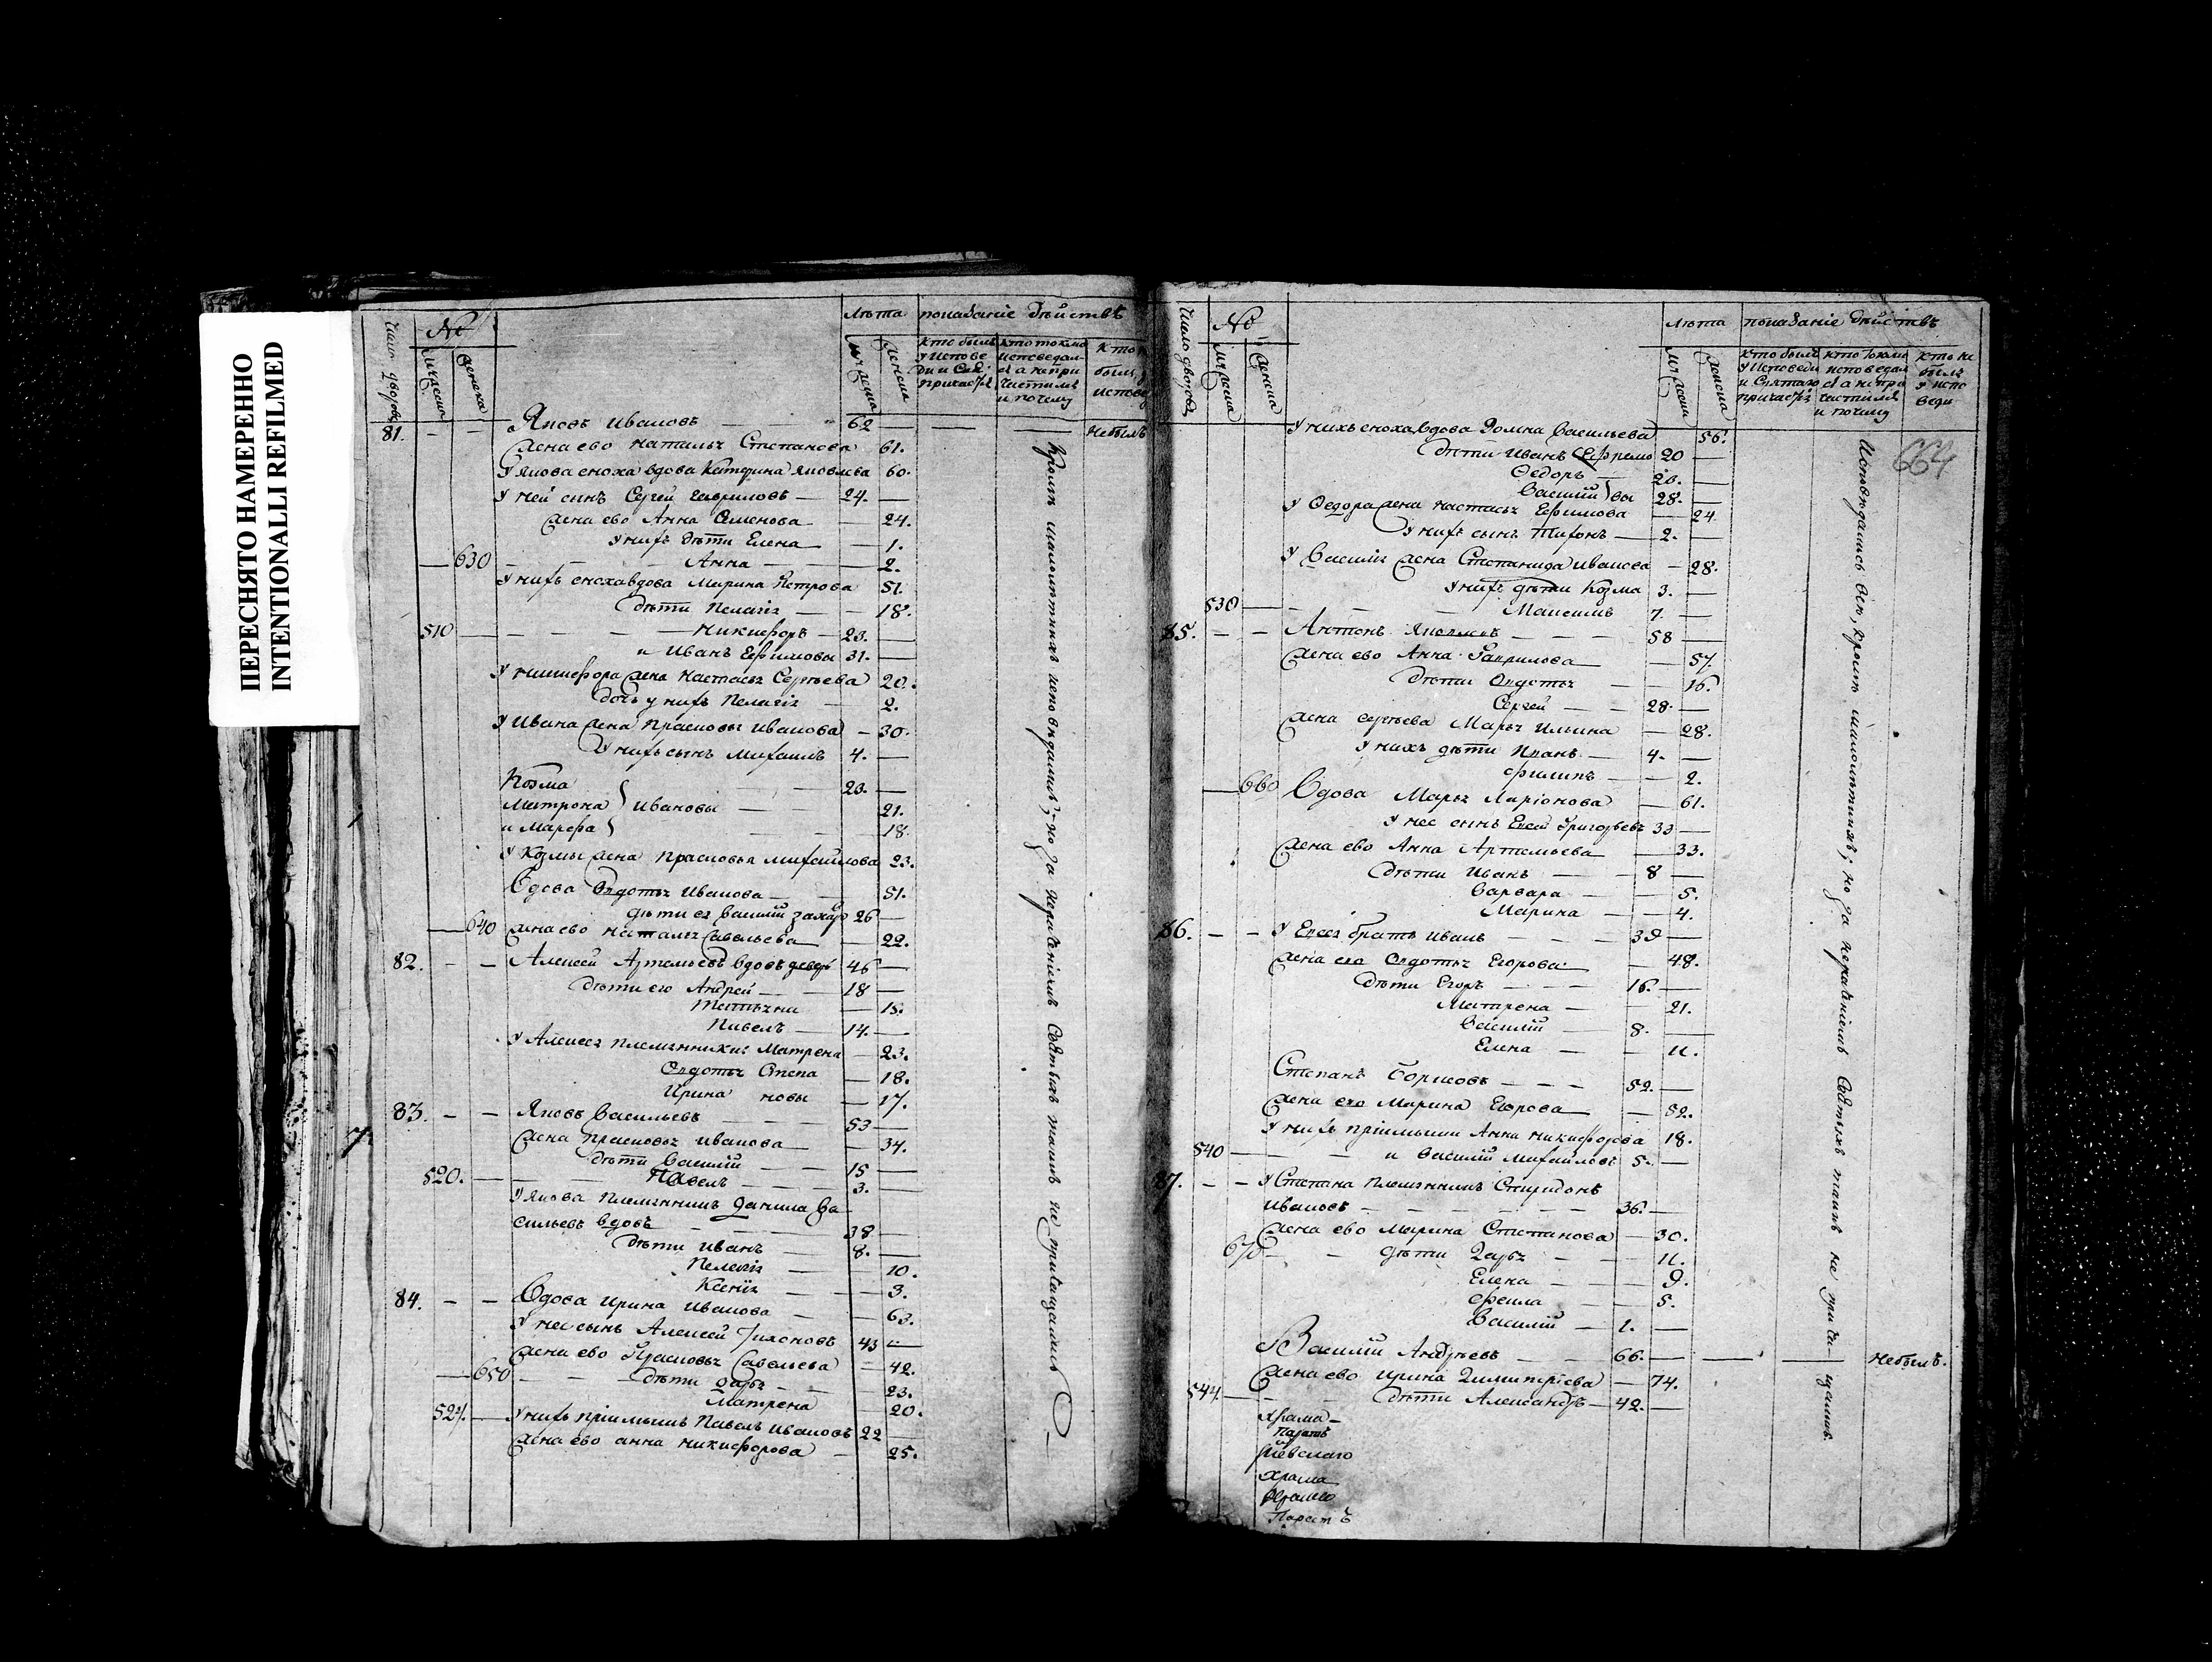 ПЕРЕСНЯТО НАМЕРЕННО
INTENTIONALLI REFILMED
Число дворовъ
№
Мужеска
Женска
Лѣта
показаніе дѣйствъ
Мужеска
Женска
Кто былъ
у Испове
ди и Свя:
причастїя
Кто токмо
исповедал
ся а непри
частился
и почему
Кто
былъ
испове
81. Яковъ Ивановъ 62 Небылъ
Жена ево Наталья Степанова 61.
У Якова сноха вдова Катерина Яковлева 60.
У ней сынъ Сергей Гавриловъ 24.
Жена ево Анна Семенова 24.
У нихъ дѣти Елена 1.
630 Анна 2.
У нихъ сноха вдова Марина Петрова 51.
Дѣти Пелагія 18.
510 Никифоръ 23.
и Иванъ Ефимовы 31.
У Никифора жена Настасья Сергѣева 20.
Дочь у нихъ Пелагія 2.
У Ивана жена Прасковья Иванова 30.
У нихъ сынъ Михаилъ 4.
Козма 23.
Матрона } Ивановы 21.
и Марфа 18.
У Козмы жена Прасковья Михайлова 23.
Вдова Овдотья Иванова 51.
дѣти ея Василій Захар 26
640 Жена ево Наталья Савельева 22.
82. Алексей Артемьевъ вдовъ 46
Дѣти его Андрей 18
Татьяна 15.
Павелъ 14.
У Алексея племянники: Матрена 23.
Овдотья Степа 18.
Ирина новы 17.
83. Яковъ Васильевъ 53
Жена Прасковья Иванова 34.
дѣти Василій 15
520. Павелъ 3.
У Якова племянникъ Данила Ва
сильевъ вдовъ 38
Дѣти Иванъ 8.
Пелагія 10.
Ксенія 3.
84. Вдова Ирина Иванова 63.
У нея сынъ Алексей Тихоновъ 43
Жена ево Прасковья Савельева 42.
650 Дѣти Дарья 23.
Матрена 20.
524. У нихъ пріимышъ Павелъ Ивановъ 22
Жена ево Анна Никифорова 25.
Кромѣ малолѣтныхъ исповѣдались; но за нераченіемъ Святыхъ таинъ не причащались
Число дворовъ
№
Мужеска
Женска
Лѣта
показаніе дѣйствъ
Мужеска
Женска
Кто былъ
у Исповеди
и Святаго
причастїя
кто токмо
исповедал
ся а непри
частился
и почему
Кто не
былъ
у испо
веди
664
У нихъ сноха вдова Домна Васильева 56.
Дѣти Иванъ Ефремо 20
Ѳедоръ 26.
Василій } вы 28.
У Ѳедора жена Настасья Ефимова 24.
У нихъ сынъ Тихонъ 2.
У Василія жена Степанида Иванова 28.
У нихъ дѣти Козма 3.
530 Максимъ 7.
85. Антонъ Яковлевъ 58
Жена ево Анна Гаврилова 57.
Дѣти Овдотья 16.
Сергей 28.
Жена Сергѣева Марья Ильина 28.
У нихъ дѣти Иванъ 4.
2.
660 Вдова Марья Ларіонова 61.
У нее сынъ Евсей Григорьевъ 33
Жена ево Анна Артемьева 33.
Дѣти Иванъ 8
Варвара 5.
Марина 4.
86. У Евсея братъ Иванъ 39
Жена его Овдотья Егорова 48.
Дѣти Егоръ 16.
Матрена 21.
Василій 8.
Елена 11.
Степанъ Борисовъ 52.
Жена его Марина Егорова 52.
У нихъ пріимыши Анна Никифорова 18.
540 и Василій Михайловъ 5.
87. У Степана племянникъ Спиридонъ
Ивановъ 36.
Жена ево Марина Степанова 30.
670 дѣти Дарья 11.
Елена 9.
Фекла 5.
Василій 1.
Василій Андрѣевъ 66. Небылъ.
Жена ево Ирина Димитріева 74.
544. Дѣти Александръ 42.
Храма
Храма
Исповѣдались всѣ, кромѣ малолѣтныхъ; но за нераченіемъ Святыхъ таинъ не причащались.